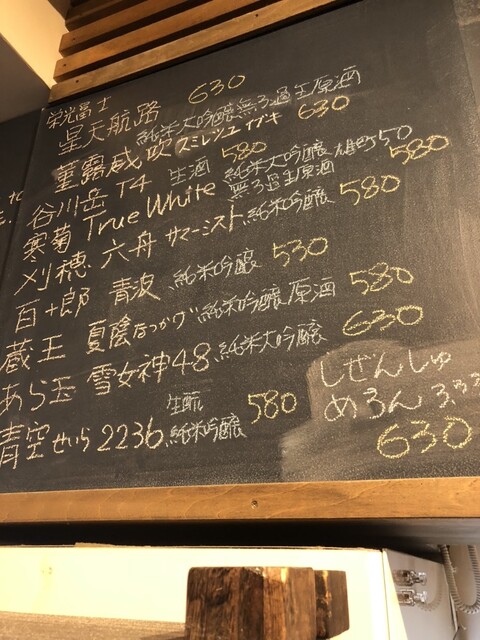 栄光冨士
星天航路 純米大吟醸無ろ過生原酒 630
菫露威吹 スミレツユイブキ 630
谷川岳 T4 生酒 580 純米大吟醸 雄町50
寒菊 True White 無ろ過生原酒 580
刈穂 六舟 サマーミスト 純米吟醸 580
百十郎 青波 純米吟醸 530
蔵王 夏陰なつかげ 純米吟醸原酒 580
あら玉 雪女神48 純米大吟醸 630
青空 せいら 2236 生酛 純米吟醸 580
しぜんしゅ
めろん 3.33
630